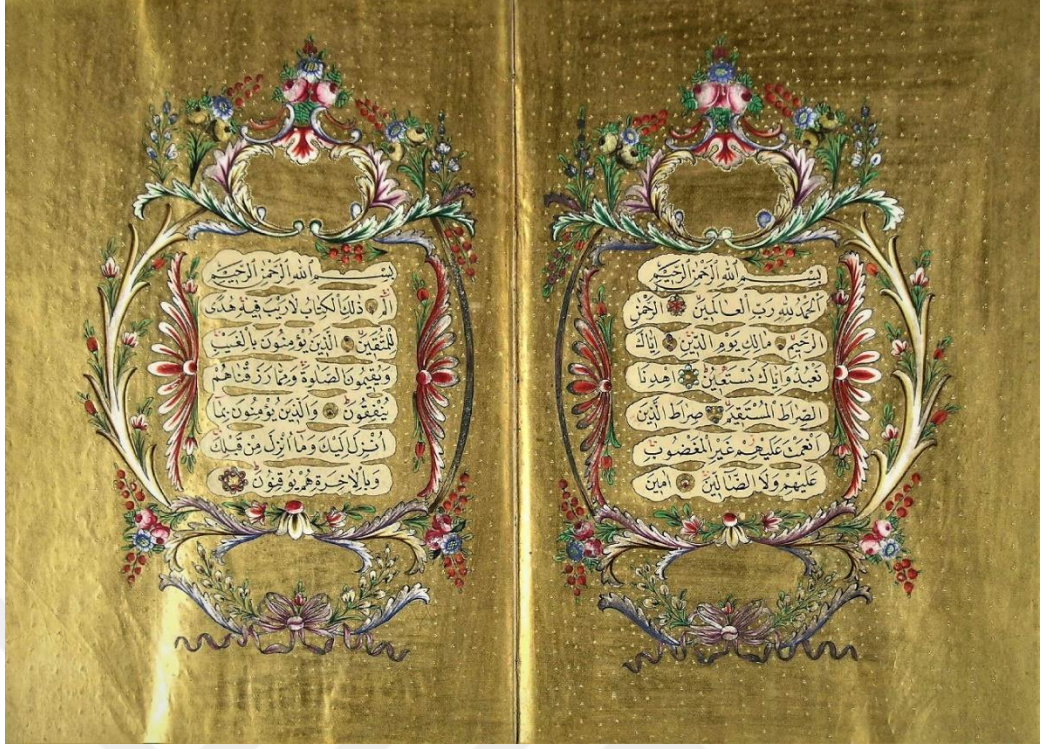 بسم الله الرحمن الرحيم
الحمد لله رب العالمين الرحمن
الرحيم مالك يوم الدين اياك
نعبد واياك نستعين اهدنا
الصراط المستقيم صراط الذين
انعمت عليهم غير المغضوب
عليهم ولا الضالين امين
بسم الله الرحمن الرحيم
الم ذلك الكتاب لا ريب فيه هدى
للمتقين الذين يؤمنون بالغيب
ويقيمون الصلوة ومما رزقناهم
ينفقون والذين يؤمنون بما
انزل اليك وما انزل من قبلك
وبالاخرة هم يوقنون